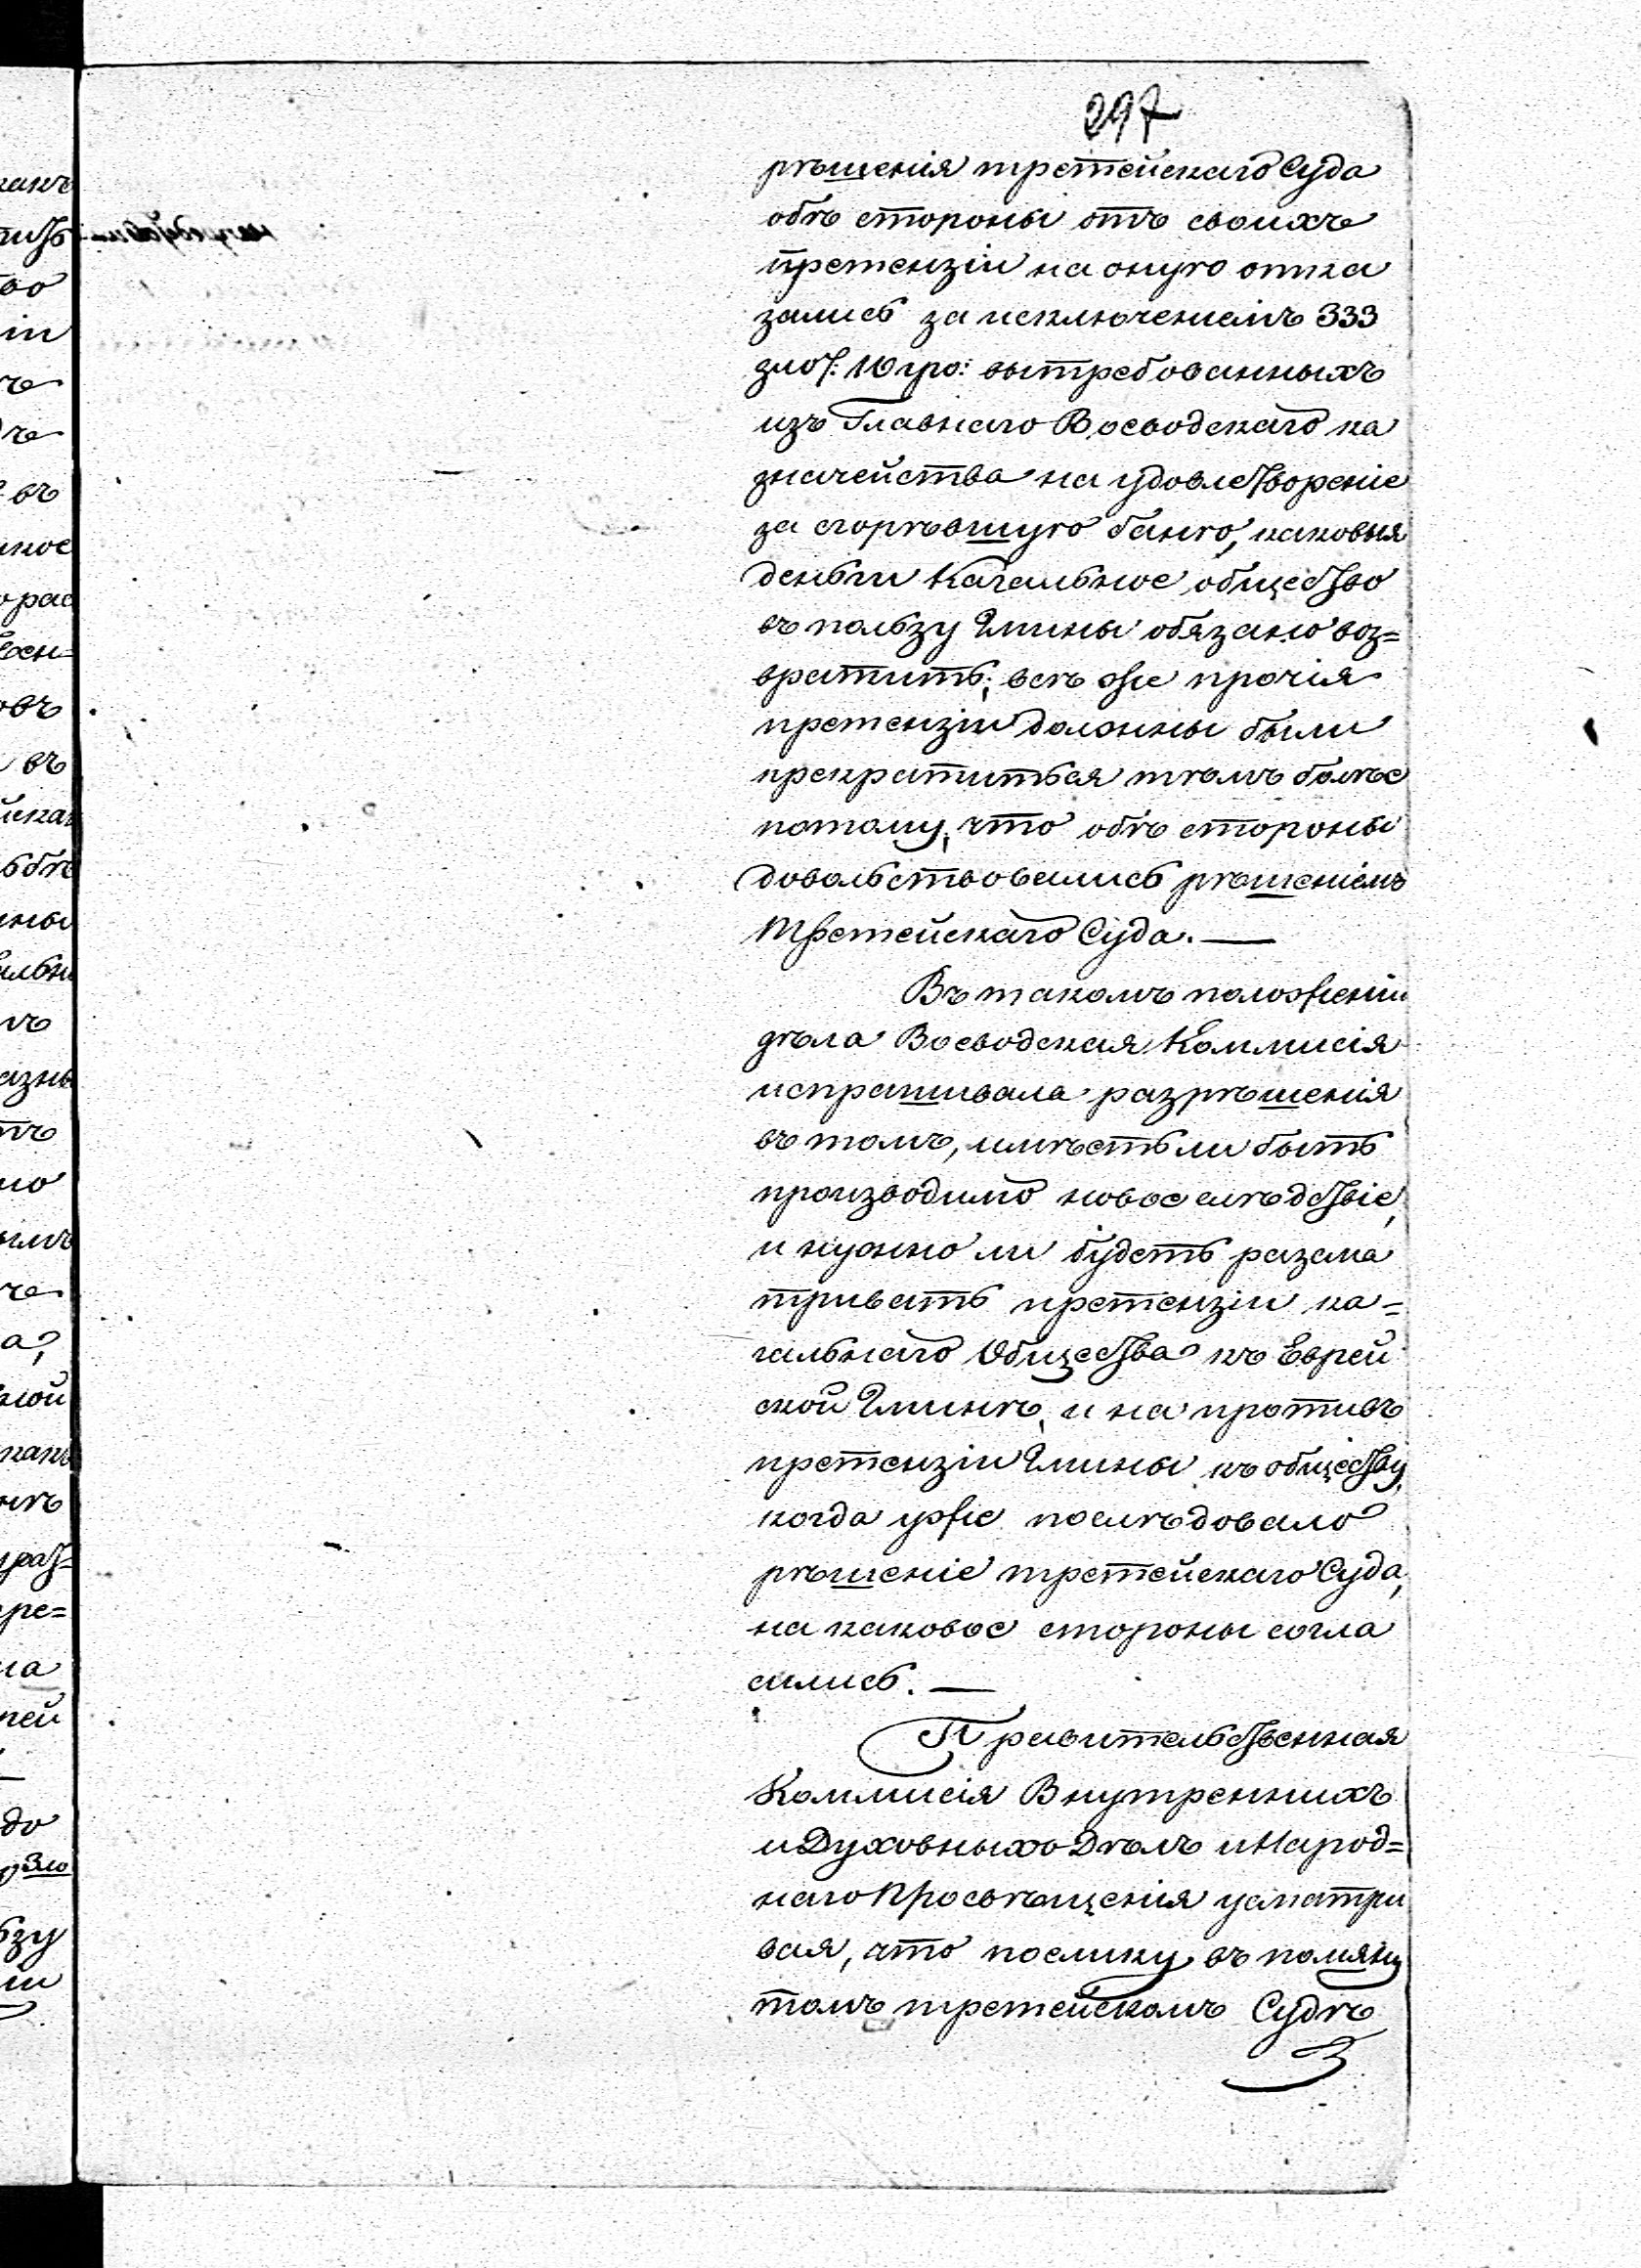 297
рѣшенія третейскаго Суда
обѣ стороны отъ своихъ
претензіи на оную отка
зались за исключеніемъ 333
злот: 10 гро: вытребованныхъ
изъ Главнаго Воеводскаго ка
значейства на удовлетвореніе
за сгорѣвшую баню, каковыя
деньги Кагальное общество
въ пользу Гмины обязано воз=
вратить; всѣ же прочія
претензіи должны были
прекратиться тѣмъ болѣе
потому, что обѣ стороны
довольствовались рѣшеніемъ
Третейскаго Суда. —
Въ такомъ положеніи
дѣла Воеводская Коммисія
испрашивала разрѣшенія
въ томъ, имѣетъ ли быть
производимо новое слѣдствіе,
и нужно ли будетъ разсма
тривать претензіи ка=
гальнаго Общества къ Еврей
ской Гминѣ, и на противъ
претензіи Гмины къ обществу,
когда уже послѣдовало
рѣшеніе третейскаго Суда,
на каковое стороны согла
сились. —
Правительственная
Коммисія Внутреннихъ
и Духовныхъ Дѣлъ и Народ=
наго Просвѣщенія усматри
вая, что поелику въ помяну
томъ третейскомъ Судѣ